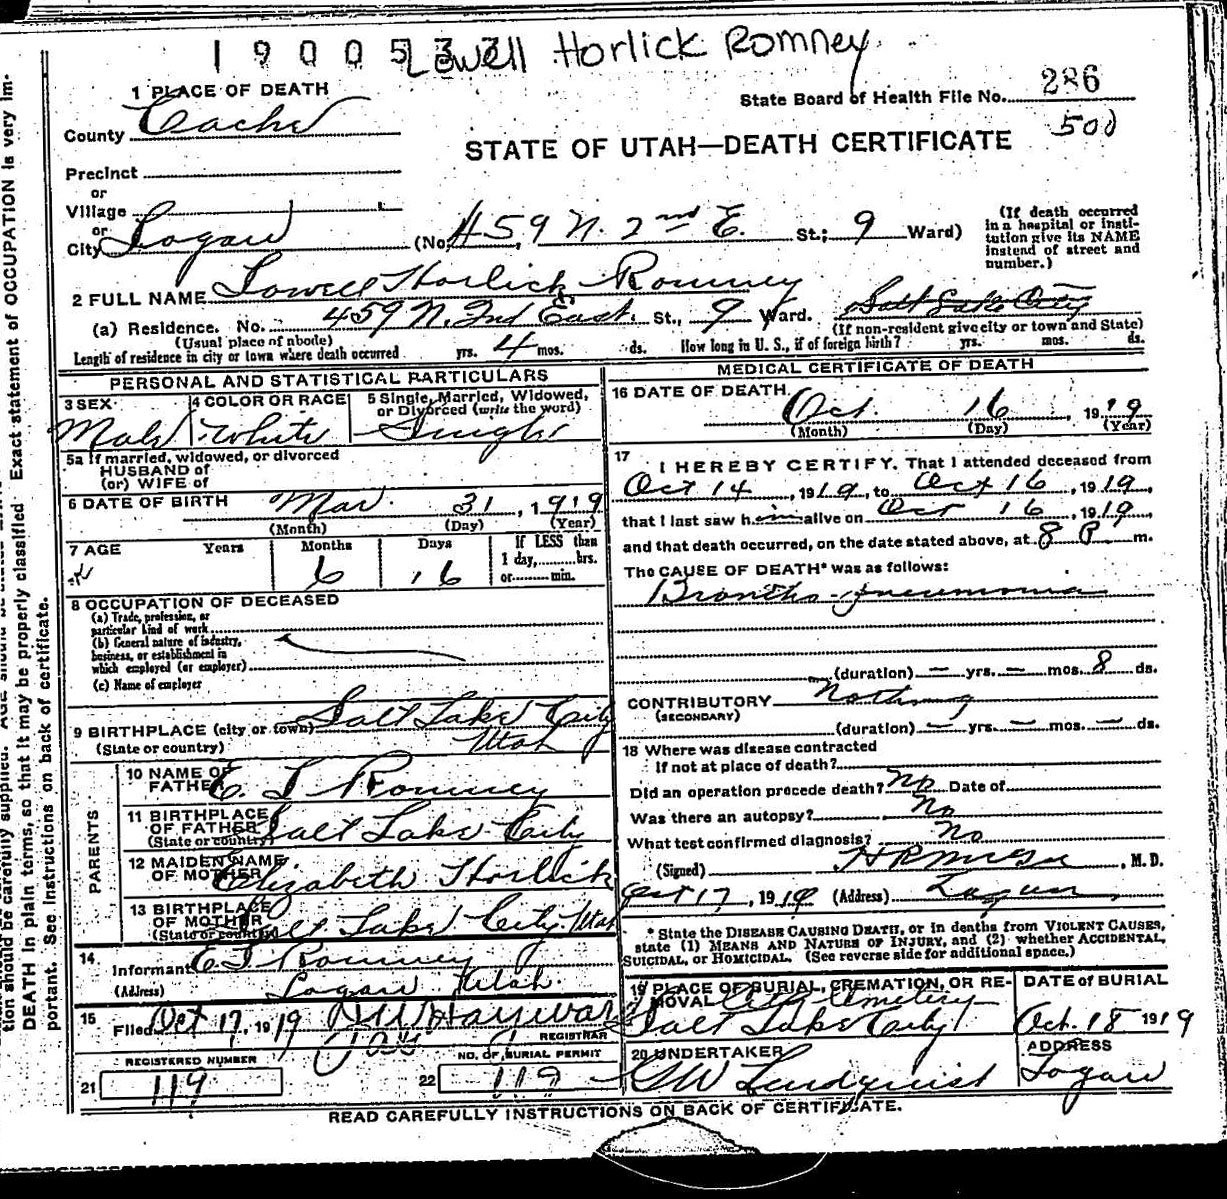 1900533 Lowell Horlick Romney
1 PLACE OF DEATH
State Board of Health File No. 286
County Cache
500
STATE OF UTAH—DEATH CERTIFICATE
Precinct
or
Village
or
City Logan (No. 459 N. 2nd E. St.; 9 Ward)
(If death occurred in a hospital or institution give its NAME instead of street and number.)
2 FULL NAME Lowell Horlick Romney
(a) Residence. No. 459 N. 2nd East. St., 9 Ward. Salt Lake City
(Usual place of abode) (If non-resident give city or town and State)
Length of residence in city or town where death occurred yrs. 4 mos. ds. How long in U. S., if of foreign birth? yrs. mos. ds.
PERSONAL AND STATISTICAL PARTICULARS
3 SEX Male
4 COLOR OR RACE White
5 Single, Married, Widowed, or Divorced (write the word) Single
5a If married, widowed, or divorced
HUSBAND of
(or) WIFE of
6 DATE OF BIRTH Mar. 31, 1919
(Month) (Day) (Year)
7 AGE Years Months Days If LESS than
6 16 1 day, hrs.
or min.
8 OCCUPATION OF DECEASED
(a) Trade, profession, or
particular kind of work
(b) General nature of industry,
business, or establishment in
which employed (or employer)
(c) Name of employer
9 BIRTHPLACE (city or town) Salt Lake City
(State or country) Utah
PARENTS
10 NAME OF FATHER E. T Romney
11 BIRTHPLACE OF FATHER Salt Lake City
(State or country)
12 MAIDEN NAME OF MOTHER Elizabeth Horlick
13 BIRTHPLACE OF MOTHER Salt Lake City, Utah
(State or country)
14 Informant E T Romney
(Address) Logan Utah.
15 Filed Oct 17, 1919
REGISTRAR
REGISTERED NUMBER NO. OF BURIAL PERMIT
21 119 22 119
MEDICAL CERTIFICATE OF DEATH
16 DATE OF DEATH Oct. 16, 1919
(Month) (Day) (Year)
17 I HEREBY CERTIFY. That I attended deceased from
Oct 14, 1919, to Oct 16, 1919,
that I last saw him alive on Oct 16, 1919,
and that death occurred, on the date stated above, at 8 P m.
The CAUSE OF DEATH* was as follows:
Broncho-pneumonia
(duration) — yrs. — mos. 8 ds.
CONTRIBUTORY Nothing
(SECONDARY)
(duration) — yrs. — mos. — ds.
18 Where was disease contracted
If not at place of death?
Did an operation precede death? No Date of
Was there an autopsy? No
What test confirmed diagnosis? No
(Signed) , M. D.
Oct 17, 1919 (Address) Logan
* State the DISEASE CAUSING DEATH, or in deaths from VIOLENT CAUSES,
state (1) MEANS AND NATURE OF INJURY, and (2) whether ACCIDENTAL,
SUICIDAL, or HOMICIDAL. (See reverse side for additional space.)
19 PLACE OF BURIAL, CREMATION, OR REMOVAL City Cemetery
Salt Lake City
DATE of BURIAL
Oct. 18 1919
20 UNDERTAKER
G W Lindquist
ADDRESS
Logan
READ CAREFULLY INSTRUCTIONS ON BACK OF CERTIFICATE.
tion should be carefully supplied.
DEATH in plain terms, so that it may be properly classified. Exact statement of OCCUPATION is very im-
portant. See instructions on back of certificate.